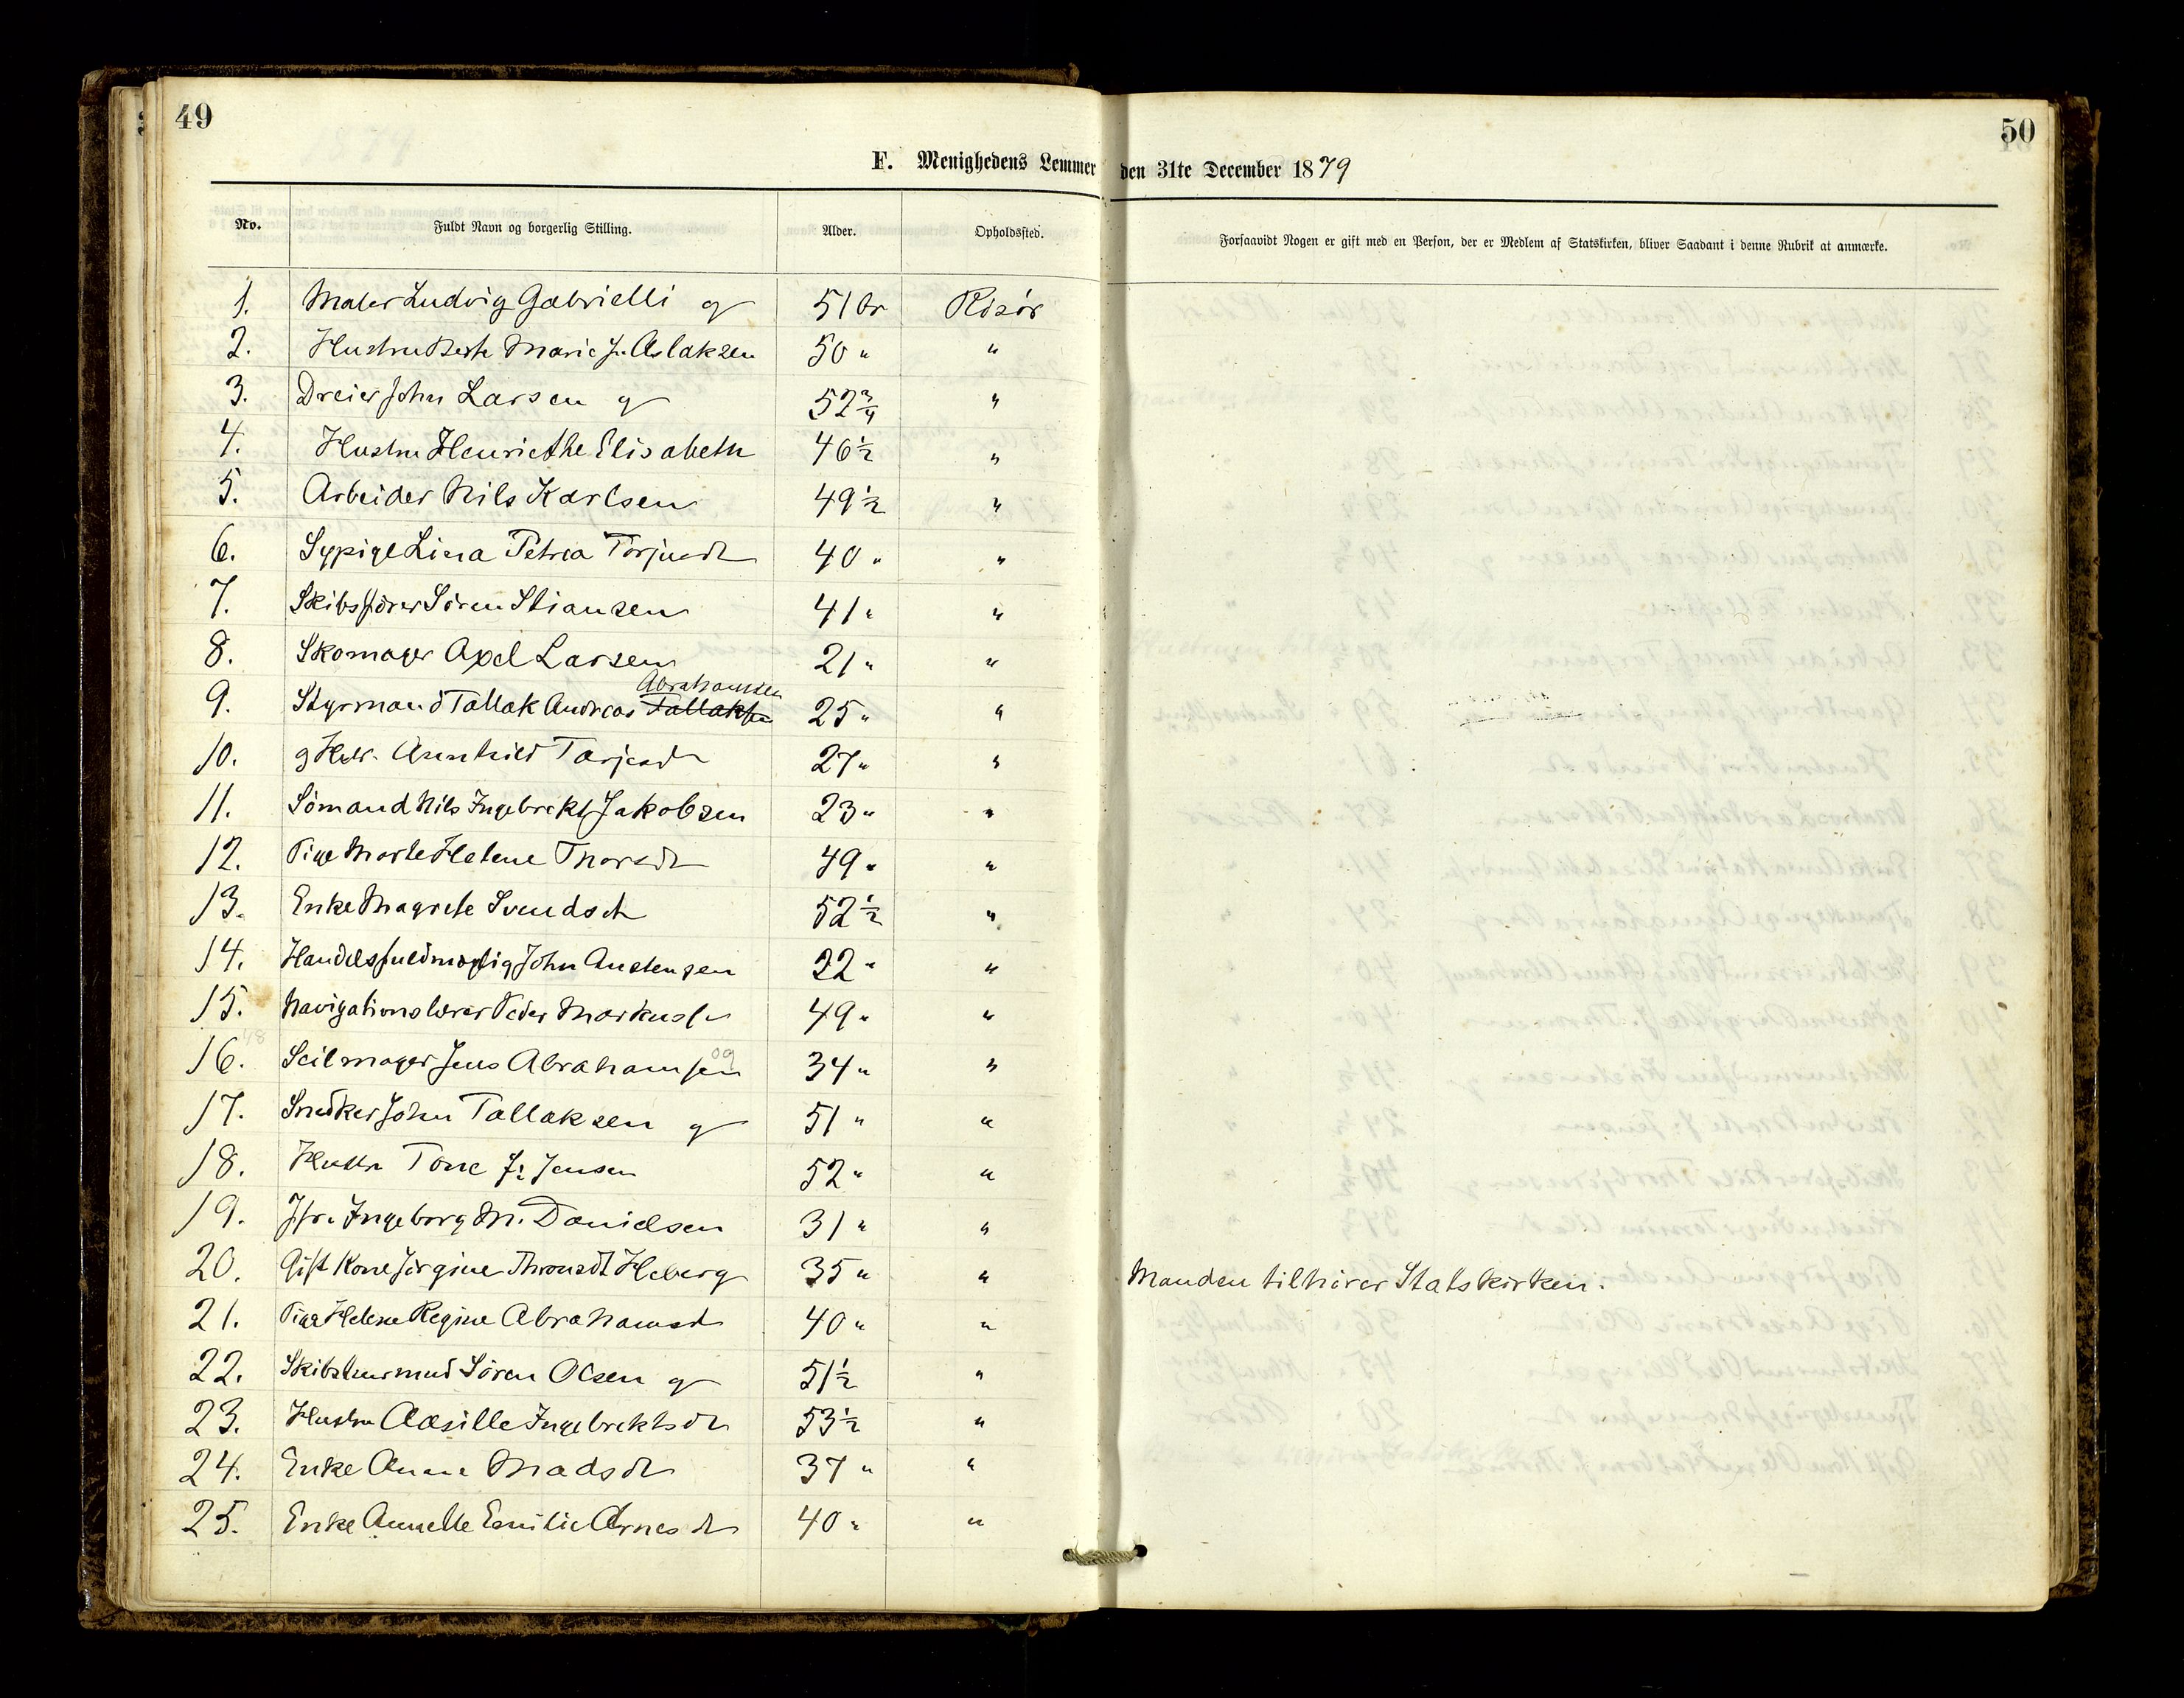 49
50
F. Menighedens Lemmer den 31te December 1879
No. Fuldt Navn og borgerlig Stilling. Alder. Opholdssted. Forsaavidt Nogen er gift med en Person, der er Medlem af Statskirken, bliver Saadant i denne Rubrik at anmærke.
1. Maler Ludvig Gabrielli og 51 Ar Risör
2. Hustru Berte Marie f. Aslaksen 50 " "
3. Dreier John Larsen og 52 3/4 "
4. Hustru Henriethe Elisabeth 46 1/2 "
5. Arbeider Nils Karlsen 49 1/2 "
6. Sypige Lina Petrea Torjusdt 40 " "
7. Skibsfører Sören Stiansen 41 " "
8. Skomager Axel Larsen 21 " "
Abrahamsen
9. Styrmand Tallak Andreas Tallaksen 25 " "
10. og Hustr. Aunhild Tarjesdt 27 " "
11. Sömand Nils Ingebrekt Jakobsen 23 " "
12. Pige Marte Helene Thorsdt 49 " "
13. Enke Magrete Svendsdt 52 1/2 "
14. Handelsfuldmægtig John Austensen 22 " "
15. Navigationslærer Peder Markussen 49 " "
48
16. Seilmager Jens Abrahamsen og 34 " "
17. Snedker John Tallaksen og 51 " "
18. Hustru Tone f: Jensen 52 " "
19. Jfr. Ingeborg M. Danielsen 31 " "
20. Gift Kone Jörgine Thronsdt Heberg 35 " " Manden tilhörer Statskirken.
21. Pige Helene Regine Abrahamsdt 40 " "
22. Skibstømmermd Sören Olsen og 51 1/2 "
23. Hustru Aasille Ingebrektsdt 53 1/2 "
24. Enke Anna Madsdt 37 " "
25. Enke Annette Emilie Arnesdt 40 " "